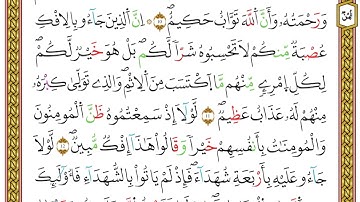 وَرَحْمَتُهُۥ وَأَنَّ ٱللَّهَ تَوَّابٌ حَكِيمٌ ۝١٠ إِنَّ ٱلَّذِينَ جَآءُو بِٱلْإِفْكِ
عُصْبَةٌ مِّنكُمْ لَا تَحْسَبُوهُ شَرًّا لَّكُم بَلْ هُوَ خَيْرٌ لَّكُمْ
لِكُلِّ ٱمْرِئٍ مِّنْهُم مَّا ٱكْتَسَبَ مِنَ ٱلْإِثْمِ وَٱلَّذِى تَوَلَّىٰ كِبْرَهُۥ
مِنْهُمْ لَهُۥ عَذَابٌ عَظِيمٌ ۝١١ لَّوْلَآ إِذْ سَمِعْتُمُوهُ ظَنَّ ٱلْمُؤْمِنُونَ
وَٱلْمُؤْمِنَٰتُ بِأَنفُسِهِمْ خَيْرًا وَقَالُوا۟ هَٰذَآ إِفْكٌ مُّبِينٌ ۝١٢ لَّوْلَا
جَآءُو عَلَيْهِ بِأَرْبَعَةِ شُهَدَآءَ فَإِذْ لَمْ يَأْتُوا۟ بِٱلشُّهَدَآءِ فَأُو۟لَٰٓئِكَ